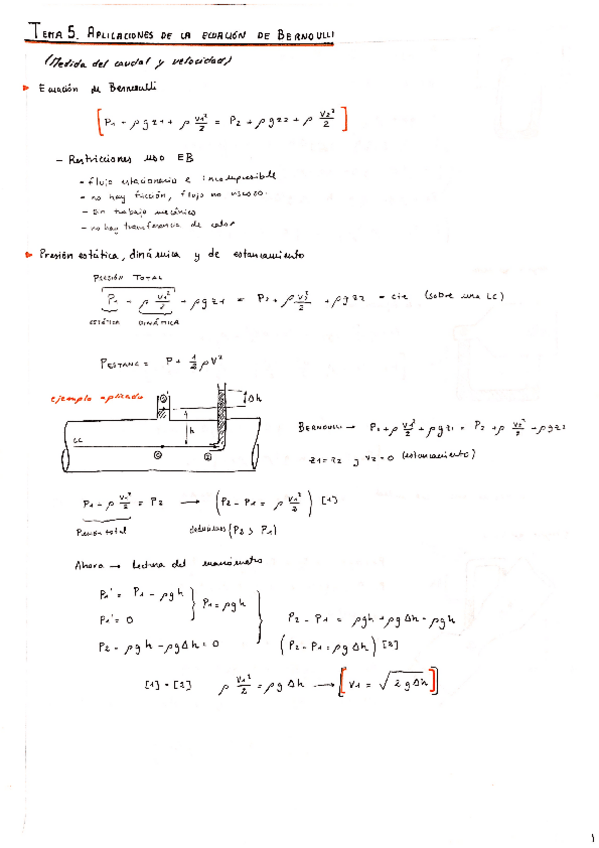 TEMA 5. APLICACIONES DE LA ECUACIÓN DE BERNOULLI
(Medida del caudal y velocidad)
Ecuación de Bernoulli
[P1 + ρgz1 + ρ v1²/2 = P2 + ρgz2 + ρ v2²/2]
- Restricciones uso EB
- flujo estacionario e incompresible
- no hay fricción, flujo no viscoso.
- Sin trabajo mecánico
- no hay transferencia de calor
Presión estática, dinámica y de estancamiento
PRESIÓN TOTAL
P1 + ρ v1²/2 + ρgz1 = P2 + ρ v2²/2 + ρgz2 = cte (sobre una LC)
ESTÁTICA DINÁMICA
PESTANC = P + 1/2 ρV²
ejemplo aplicado
①'
Δh
h
LC
①
②
BERNOULLI → P1 + ρ v1²/2 + ρgz1 = P2 + ρ v2²/2 + ρgz2
z1 = z2 y v2 = 0 (estancamiento)
P1 + ρ v1²/2 = P2 → (P2 - P1 = ρ v1²/2) [1]
Presión total
deducimos (P2 > P1)
Ahora → Lectura del manómetro
P1' = P1 - ρgh
P1' = 0
P1 = ρgh
P2 - ρgh - ρgΔh = 0
P2 - P1 = ρgh + ρgΔh - ρgh
(P2 - P1 = ρgΔh) [2]
[1] = [2] ρ v1²/2 = ρgΔh → [v1 = √2gΔh]
1